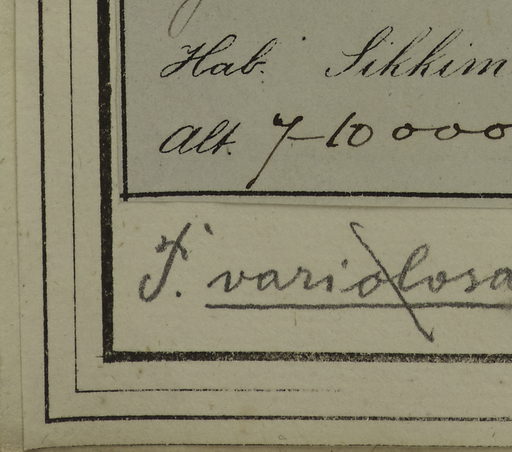 Hab. Sikkim
Alt. 7-10000
F. variolosa